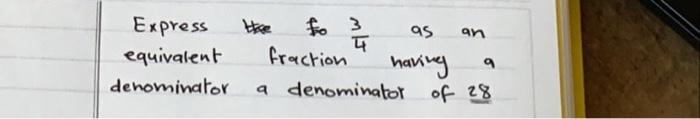 Express 3/4 as an
equivalent fraction having a
denominator a denominator of 28